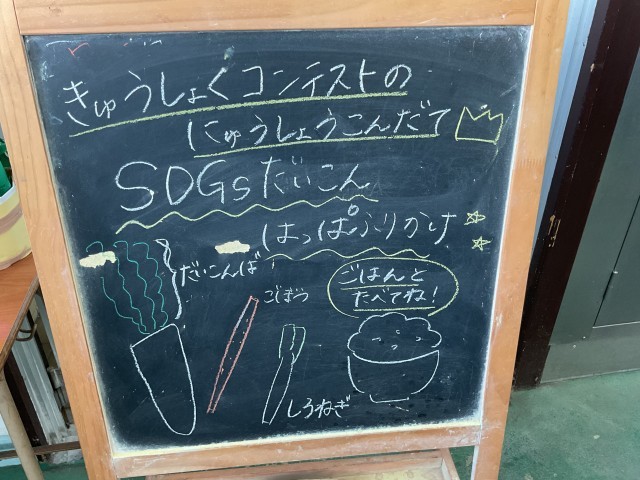 きゅうしょくコンテストの
にゅうしょうこんだて
SDGsだいこん
はっぱふりかけ
だいこんば
ごぼう
ごはんと
たべてね!
しろねぎ